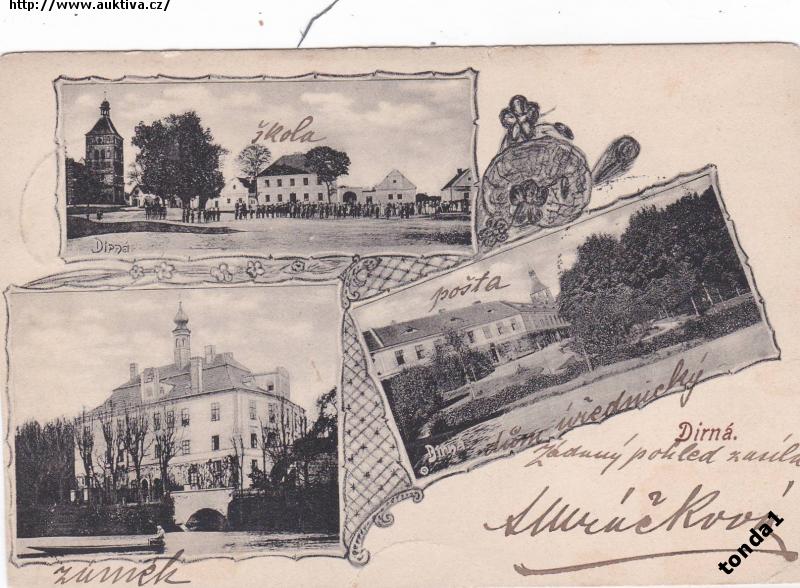 http://www.auktiva.cz/
škola
Dirná
pošta
Dirná
dům úřednický
Dirná.
Žádaný pohled zasílá
AMráčková
zámek
tonda1